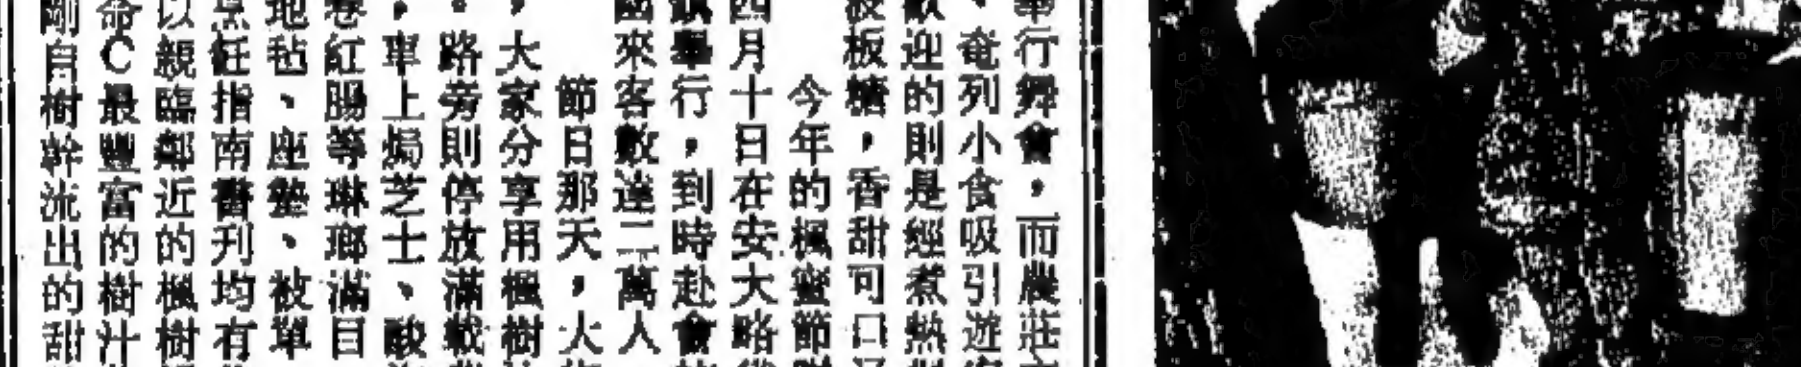 行舞會，而農莊
、奄列小食吸引遊
迎的則是經煮熱
板糖，香甜可口
今年的楓蜜節
四月十日在安大略
舉行，到時赴會
國來客數達二萬人
節日那天，
，大家分享用楓樹
。路旁則停放滿載
，車上焗芝士、酸
紅腸等琳瑯滿目
地毡、座墊、被單
指南書刊均有
以親臨鄰近的楓樹
命C最豐富的樹汁
剛自樹幹流出的甜